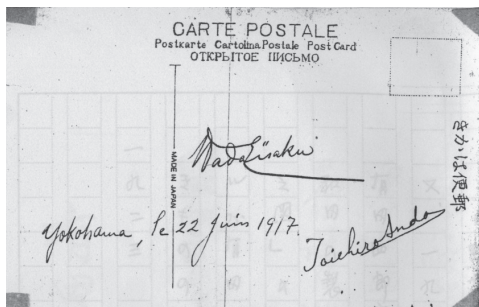 CARTE POSTALE
Postkarte Cartolina Postale Post Card
ОТКРЫТОЕ ПИСЬМО
MADE IN JAPAN
きかは便郵
Wada Eisaku
Yokohama, le 22 Juin 1917.
Toichiro Ando